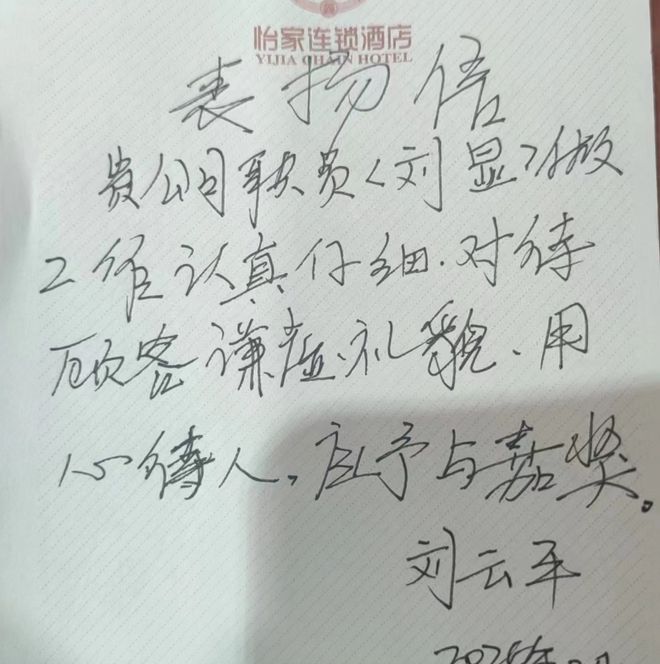 怡家连锁酒店
YIJIA CHAIN HOTEL
表扬信
贵公司职员<刘显>做
工作认真仔细.对待
顾客谦虚、礼貌、用
心待人,应予与嘉奖。
刘云平